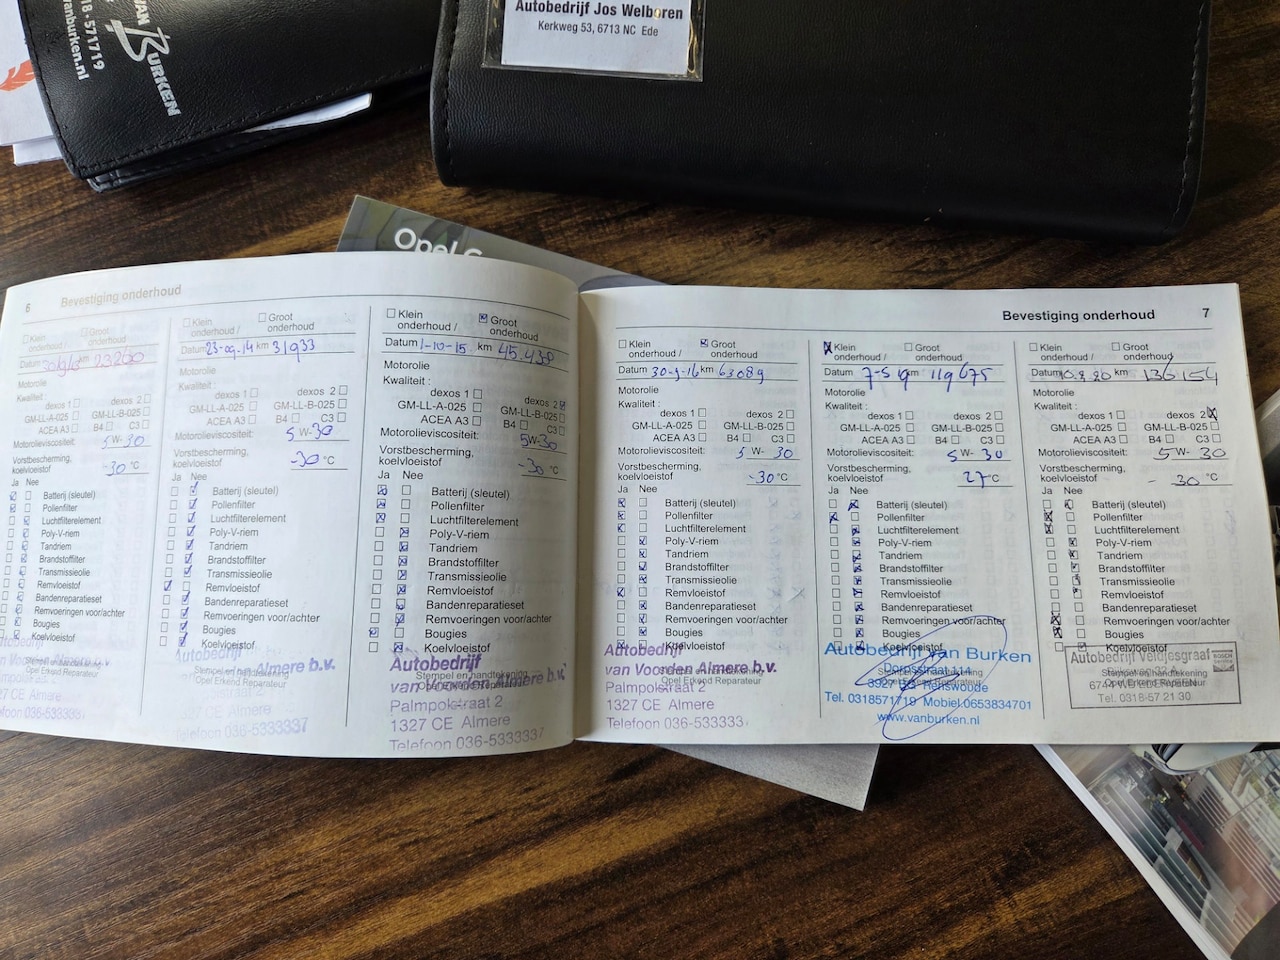 VAN
BURKEN
18 - 571719
anburken.nl
Autobedrijf Jos Welboren
Kerkweg 53, 6713 NC Ede
Opel
6 Bevestiging onderhoud
Klein onderhoud / Groot onderhoud
Datum km 23260
Motorolie
Kwaliteit :
dexos 1 dexos 2
GM-LL-A-025 GM-LL-B-025
ACEA A3 B4 C3
Motorolieviscositeit: 5 W- 30
Vorstbescherming, koelvloeistof -30 °C
Ja Nee
Batterij (sleutel)
Pollenfilter
Luchtfilterelement
Poly-V-riem
Tandriem
Brandstoffilter
Transmissieolie
Remvloeistof
Bandenreparatieset
Remvoeringen voor/achter
Bougies
Koelvloeistof
Stempel en handtekening
Opel Erkend Reparateur
1327 CE Almere
Klein onderhoud / Groot onderhoud
Datum 23-09-14 km 31933
Motorolie
Kwaliteit :
dexos 1 dexos 2
GM-LL-A-025 GM-LL-B-025
ACEA A3 B4 C3
Motorolieviscositeit: 5 W- 30
Vorstbescherming, koelvloeistof -30 °C
Ja Nee
Batterij (sleutel)
Pollenfilter
Luchtfilterelement
Poly-V-riem
Tandriem
Brandstoffilter
Transmissieolie
Remvloeistof
Bandenreparatieset
Remvoeringen voor/achter
Bougies
Koelvloeistof
Stempel en handtekening
Opel Erkend Reparateur
Autobedrijf
van Voorden Almere b.v.
1327 CE Almere
Telefoon 036-5333337
Klein onderhoud / Groot onderhoud
Datum 1-10-15 km 45.438
Motorolie
Kwaliteit :
dexos 1 dexos 2
GM-LL-A-025 GM-LL-B-025
ACEA A3 B4 C3
Motorolieviscositeit: 5W-30
Vorstbescherming, koelvloeistof -30 °C
Ja Nee
Batterij (sleutel)
Pollenfilter
Luchtfilterelement
Poly-V-riem
Tandriem
Brandstoffilter
Transmissieolie
Remvloeistof
Bandenreparatieset
Remvoeringen voor/achter
Bougies
Koelvloeistof
Stempel en handtekening
Opel Erkend Reparateur
Autobedrijf
van Voorden Almere b.v.
Palmpolstraat 2
1327 CE Almere
Telefoon 036-5333337
Bevestiging onderhoud 7
Klein onderhoud / Groot onderhoud
Datum 30-9-16 km 63089
Motorolie
Kwaliteit :
dexos 1 dexos 2
GM-LL-A-025 GM-LL-B-025
ACEA A3 B4 C3
Motorolieviscositeit: 5 W- 30
Vorstbescherming, koelvloeistof -30 °C
Ja Nee
Batterij (sleutel)
Pollenfilter
Luchtfilterelement
Poly-V-riem
Tandriem
Brandstoffilter
Transmissieolie
Remvloeistof
Bandenreparatieset
Remvoeringen voor/achter
Bougies
Koelvloeistof
Stempel en handtekening
Opel Erkend Reparateur
Autobedrijf
van Voorden Almere b.v.
Palmpolstraat 2
1327 CE Almere
Telefoon 036-533333
Klein onderhoud / Groot onderhoud
Datum 7-5 19 km 119675
Motorolie
Kwaliteit :
dexos 1 dexos 2
GM-LL-A-025 GM-LL-B-025
ACEA A3 B4 C3
Motorolieviscositeit: 5 W- 30
Vorstbescherming, koelvloeistof 27 °C
Ja Nee
Batterij (sleutel)
Pollenfilter
Luchtfilterelement
Poly-V-riem
Tandriem
Brandstoffilter
Transmissieolie
Remvloeistof
Bandenreparatieset
Remvoeringen voor/achter
Bougies
Koelvloeistof
Stempel en handtekening
Opel Erkend Reparateur
Autobedrijf van Burken
Dorpsstraat 114
3927 Renswoude
Tel. 0318571719 Mobiel 0653834701
www.vanburken.nl
Klein onderhoud / Groot onderhoud
Datum km 136154
Motorolie
Kwaliteit :
dexos 1 dexos 2
GM-LL-A-025 GM-LL-B-025
ACEA A3 B4 C3
Motorolieviscositeit: 5 W- 30
Vorstbescherming, koelvloeistof - 30 °C
Ja Nee
Batterij (sleutel)
Pollenfilter
Luchtfilterelement
Poly-V-riem
Tandriem
Brandstoffilter
Transmissieolie
Remvloeistof
Bandenreparatieset
Remvoeringen voor/achter
Bougies
Koelvloeistof
Stempel en handtekening
Opel Erkend Reparateur
Autobedrijf Veldjesgraaf
BOSCH
Tel. 0318-57 21 30